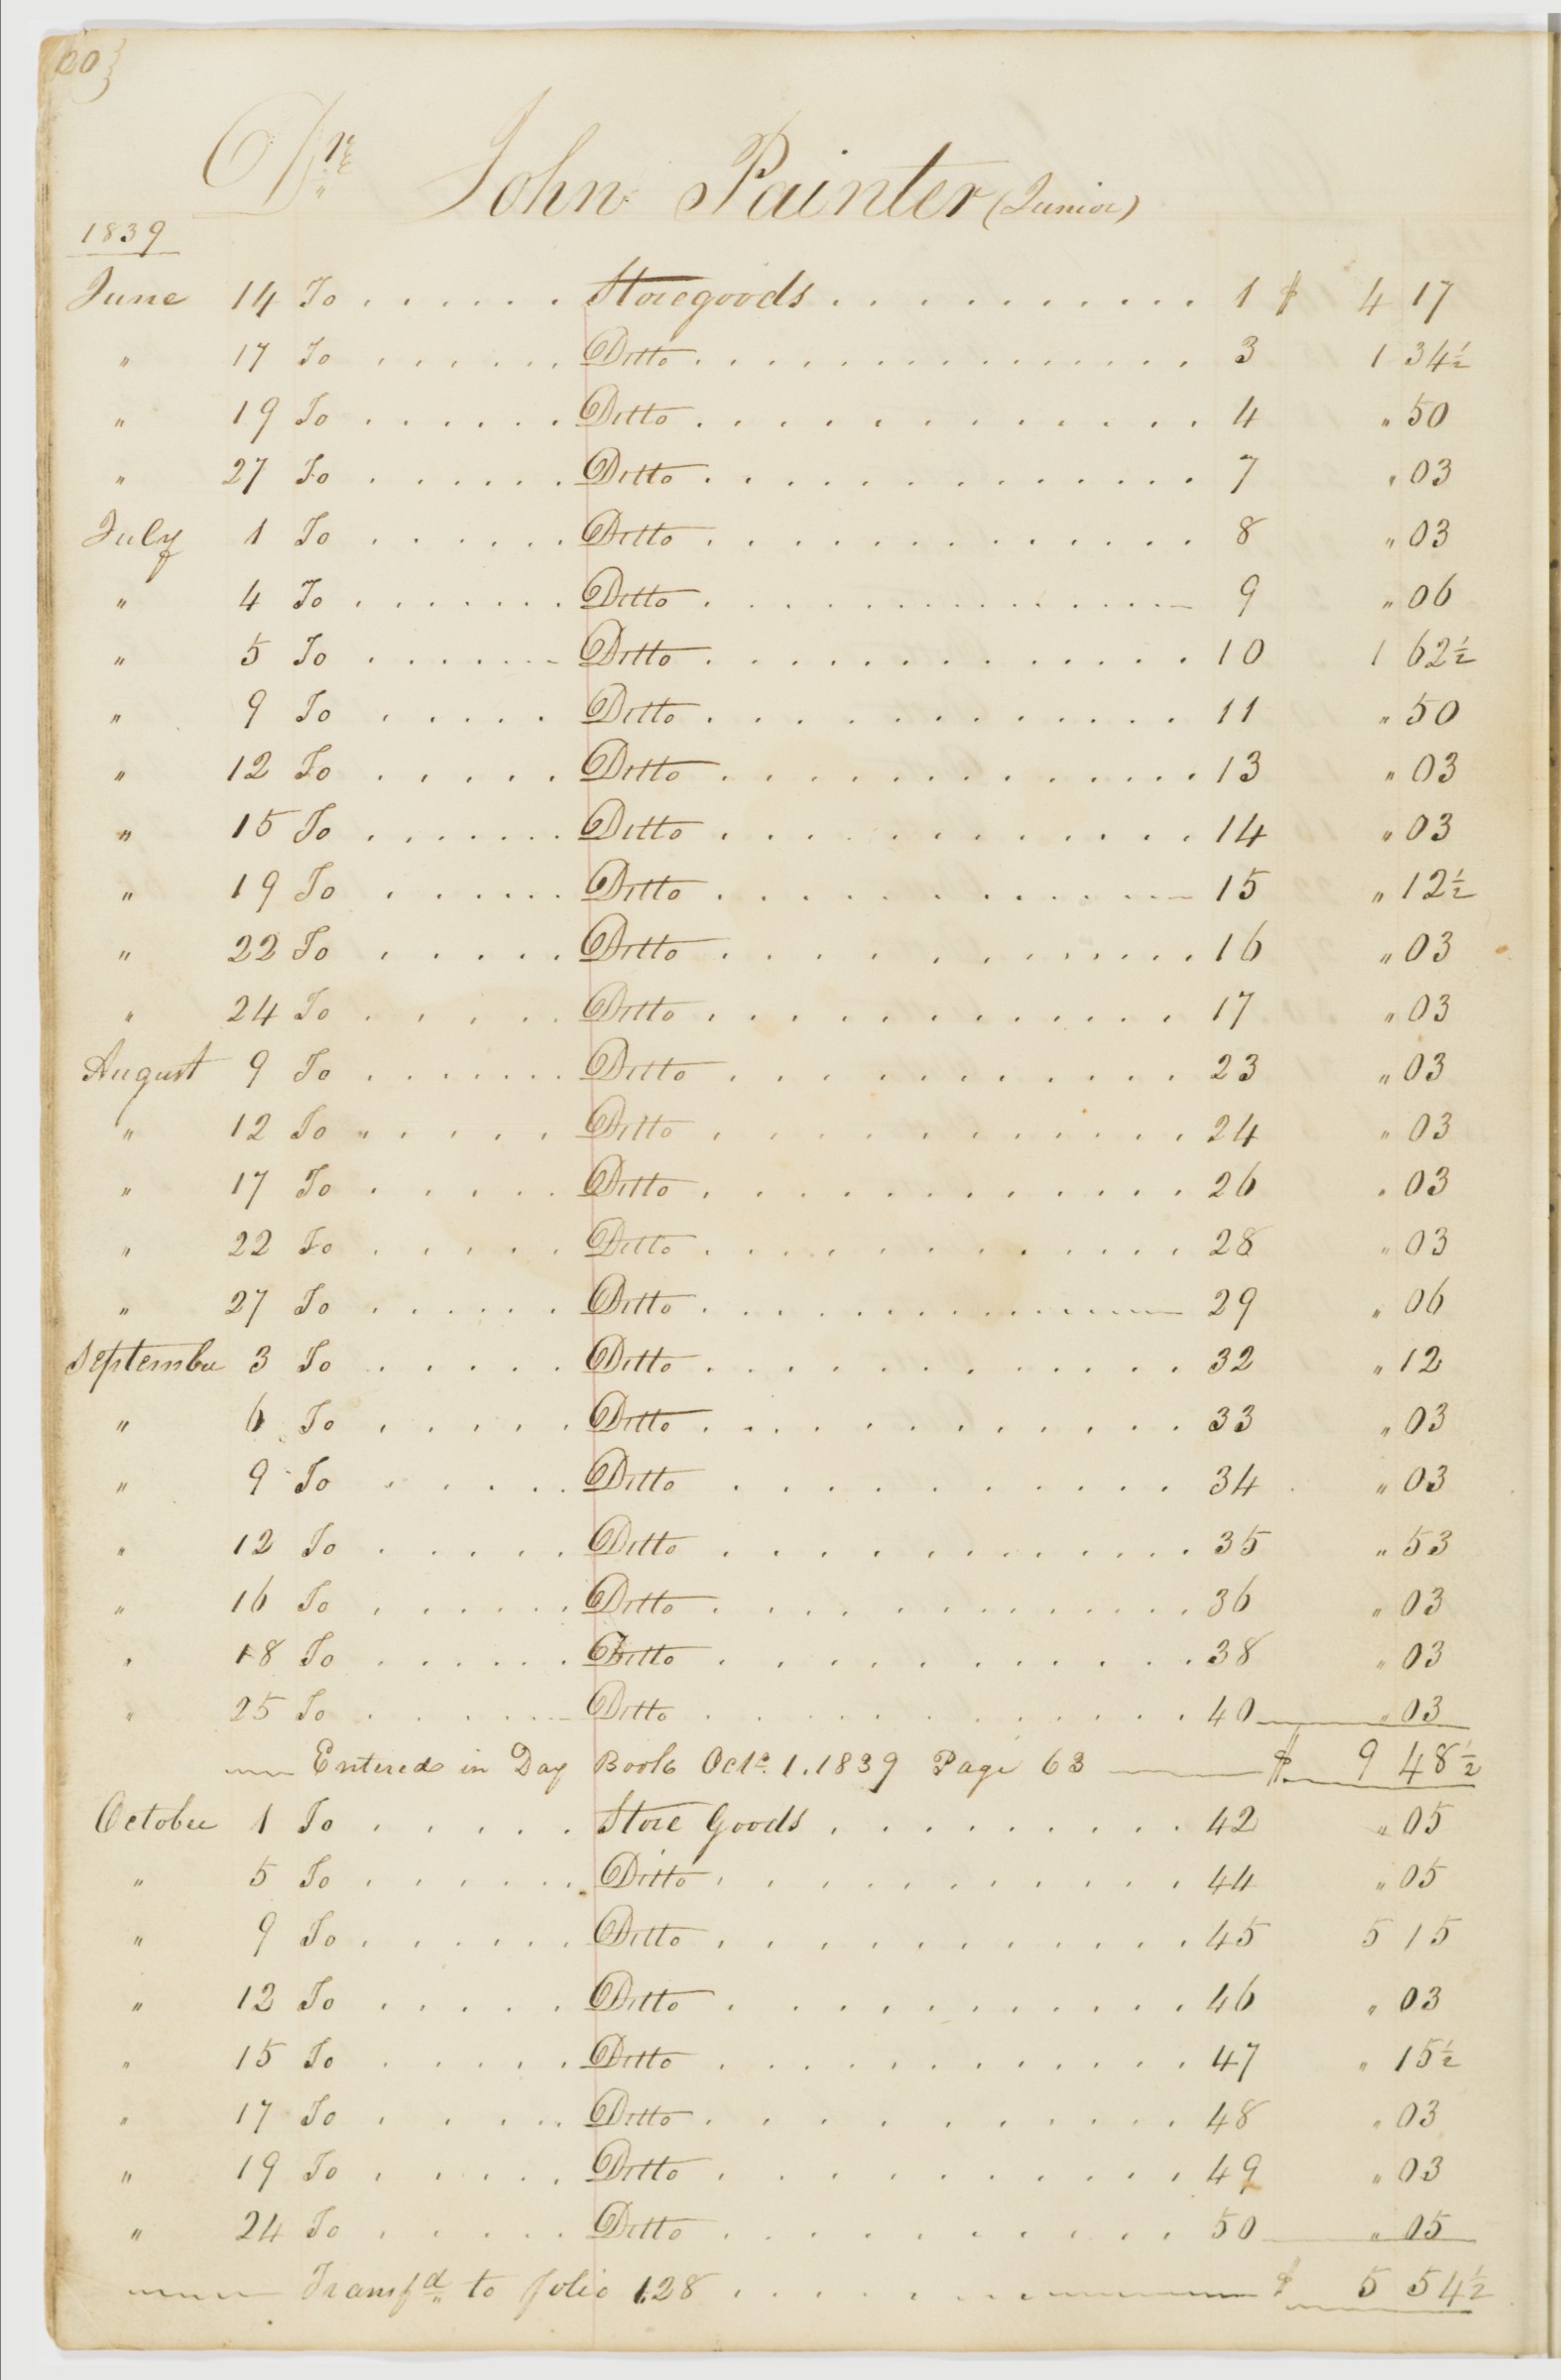 60}
Dr John Painter (Junior)
1839
June 14 To . . . . . . Storegoods . . . . . . . . . . 1 $ 4 17
" 17 To . . . . . . Ditto . . . . . . . . . . . . 3 1 34½
" 19 To . . . . . . Ditto . . . . . . . . . . . . 4 " 50
" 27 To . . . . . . Ditto . . . . . . . . . . . . 7 " 03
July 1 To . . . . . . Ditto . . . . . . . . . . . . 8 " 03
" 4 To . . . . . . Ditto . . . . . . . . . . . . 9 " 06
" 5 To . . . . . . Ditto . . . . . . . . . . . . 10 1 62½
" 9 To . . . . . Ditto . . . . . . . . . . . . 11 " 50
" 12 To . . . . . Ditto . . . . . . . . . . . . 13 " 03
" 15 To . . . . . . Ditto . . . . . . . . . . . . 14 " 03
" 19 To . . . . . . Ditto . . . . . . . . . . . . 15 " 12½
" 22 To . . . . . Ditto . . . . . . . . . . . . 16 " 03
" 24 To . . . . . Ditto . . . . . . . . . . . . 17 " 03
August 9 To . . . . . . Ditto . . . . . . . . . . . 23 " 03
" 12 To . . . . . Ditto . . . . . . . . . . . 24 " 03
" 17 To . . . . . Ditto . . . . . . . . . . . . 26 " 03
" 22 To . . . . . Ditto . . . . . . . . . . . . 28 " 03
" 27 To . . . . . . Ditto . . . . . . . . . . . . 29 " 06
September 3 To . . . . . Ditto . . . . . . . . . . . . 32 " 12
" 6 To . . . . . Ditto . . . . . . . . . . . . 33 " 03
" 9 To . . . . . Ditto . . . . . . . . . . . 34 " 03
" 12 To . . . . . Ditto . . . . . . . . . . . . 35 " 53
" 16 To . . . . . . Ditto . . . . . . . . . . . . 36 " 03
" 18 To . . . . . . Ditto . . . . . . . . . . . 38 " 03
" 25 To . . . . . . Ditto . . . . . . . . . . . . 40 " 03
Entered in Day Book Octr. 1. 1839 Page 63 $ 9 48½
October 1 To . . . . . Store Goods . . . . . . . . . 42 " 05
" 5 To . . . . . . Ditto . . . . . . . . . . . 44 " 05
" 9 To . . . . . . Ditto . . . . . . . . . . . 45 5 15
" 12 To . . . . . Ditto . . . . . . . . . . . 46 " 03
" 15 To . . . . . Ditto . . . . . . . . . . . 47 " 15½
" 17 To . . . . . Ditto . . . . . . . . . . . 48 " 03
" 19 To . . . . . Ditto . . . . . . . . . . . 49 " 03
" 24 To . . . . . Ditto . . . . . . . . . . . 50 " 05
Transfd to folio 128 . . . . . $ 5 54½